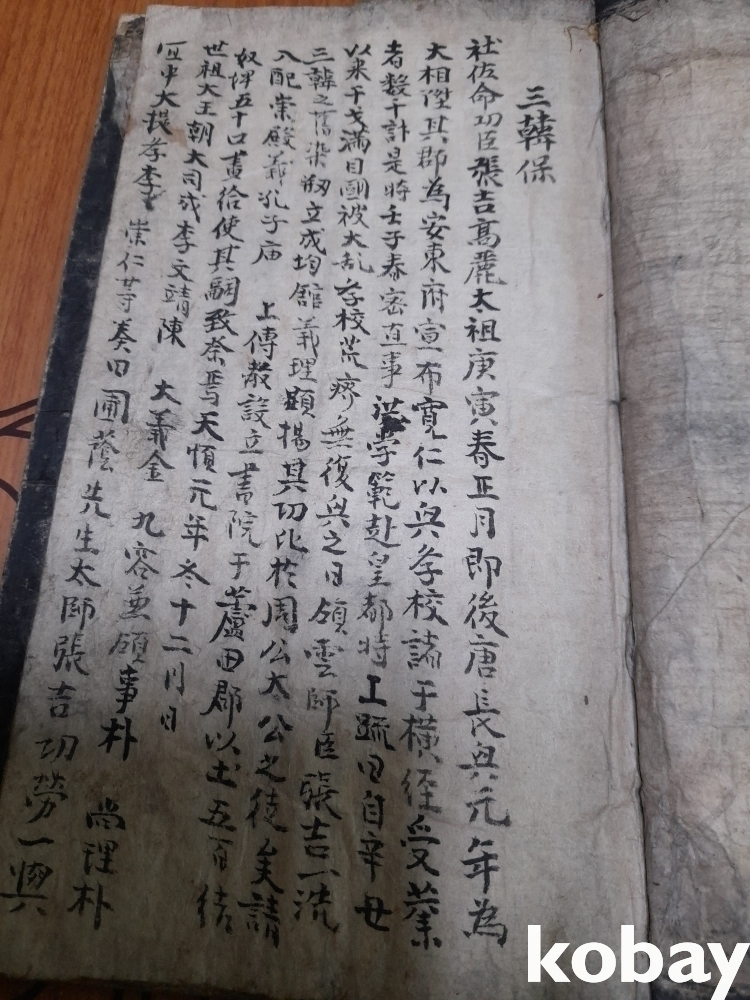 三韓保
社佐命功臣張吉高麗太祖庚寅春正月即後唐長興元年為
大相陞其郡為安東府宣布寬仁以興孝校諸于橫徑受業
者數千計是時壬子春密直事洪學範赴皇都時上疏曰自辛丑
以来干戈滿目國被大乱孝校荒癈無復興之日領雲師臣張吉一洗
三韓之舊染刱立成均館義理顯揚其功比於周公太公之徒矣請
入配崇殿義孔子庙 上傳敎設立書院于蘆田郡以土五百結
奴婢五十口畫給使其嗣致祭焉天順元年冬十二月日
世祖大王朝大司成李文靖陳 大義金 九容兼領事朴 尚理朴
宜中大提孝李 崇仁等奏曰圃蔭先生太師張吉功勞一與
kobay